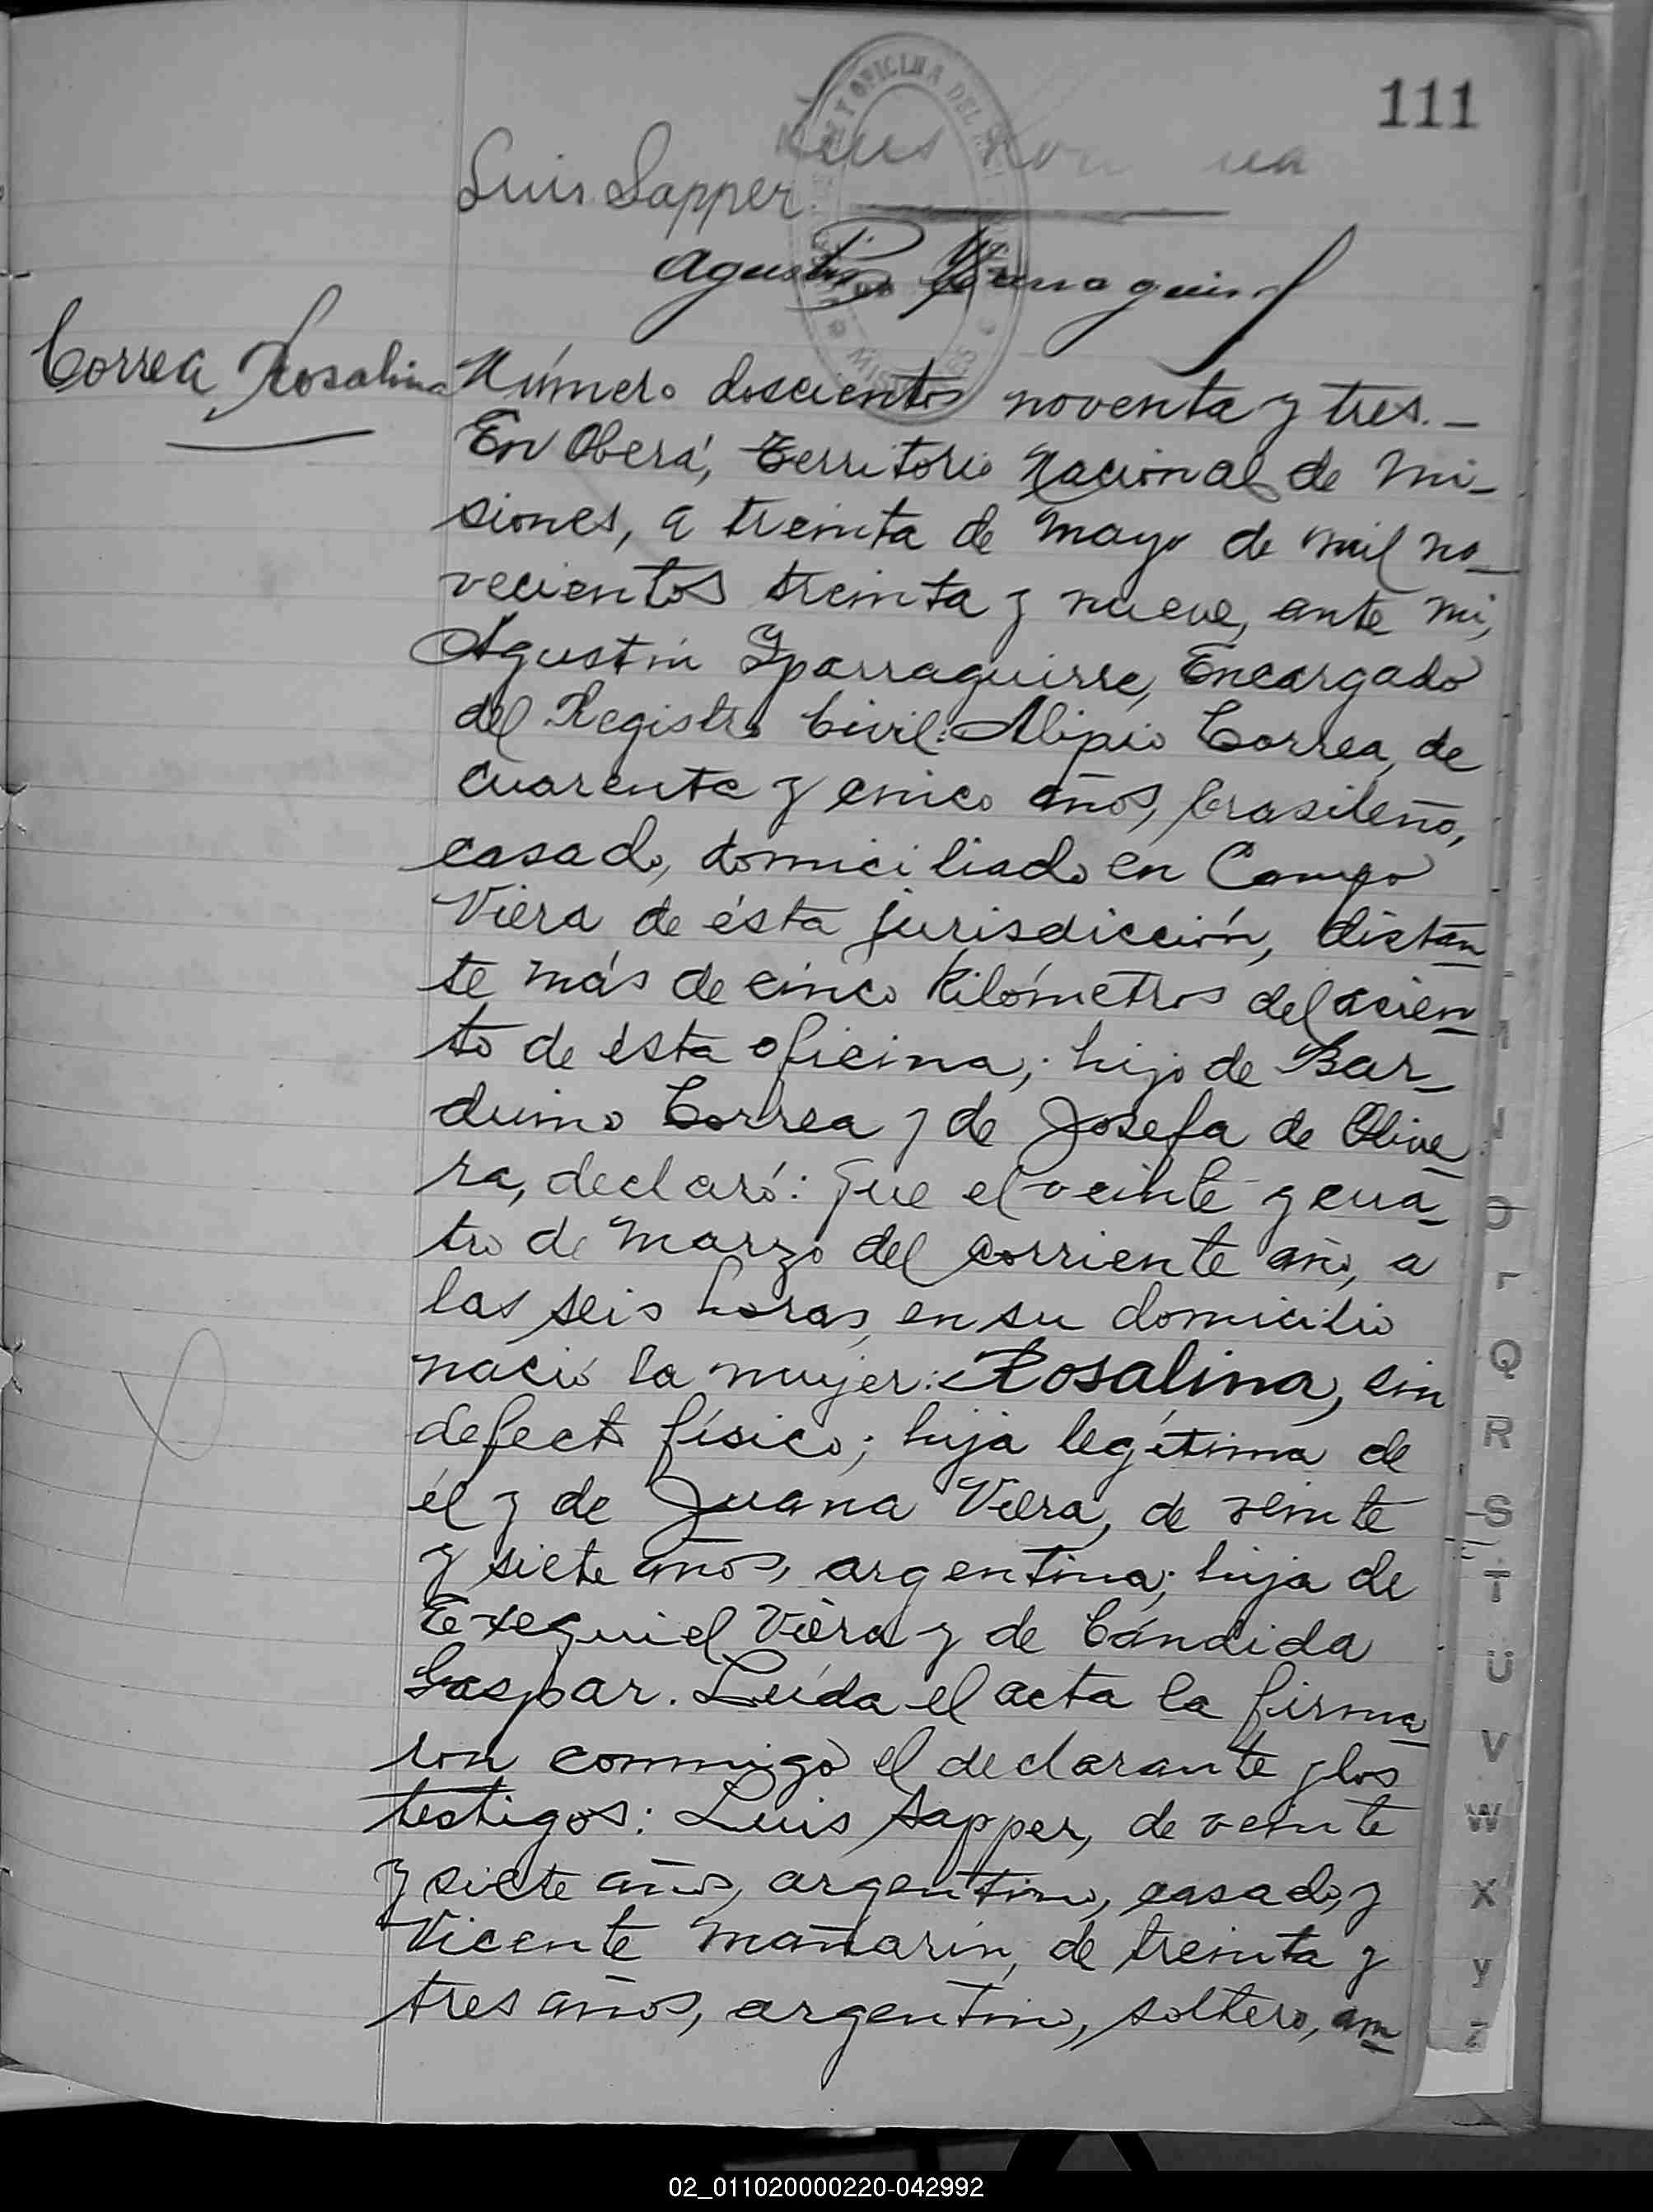 111
Luis Sapper
Agustín
Correa, Rosalina
Número doscientos noventa y tres.-
En Oberá, Territorio Nacional de Mi-
siones, a treinta de Mayo de mil no-
vecientos treinta y nueve, ante mi,
Agustín Yparraguirre, Encargado
del Registro Civil: Alipio Correa, de
cuarenta y cinco años, brasileño,
casado, domiciliado en Campo
Viera de ésta jurisdicción, distan-
te más de cinco kilómetros del asien-
to de ésta oficina; hijo de Bar-
duino Correa y de Josefa de Olive-
ra, declaró: Que el veinte y cua-
tro de Marzo del corriente año, a
las seis horas, en su domicilio
nació la mujer: Rosalina, sin
defecto físico; hija legítima de
él y de Juana Viera, de veinte
y siete años, argentina; hija de
Exequiel Viera y de Cándida
Gaspar. Leída el acta la firma-
ron conmigo el declarante y los
testigos: Luis Sapper, de veinte
y siete años, argentino, casado, y
Vicente Mañarín, de treinta y
tres años, argentino, soltero, am-
O
Q
R
S
T
U
V
W
X
Y
Z
02_011020000220-042992